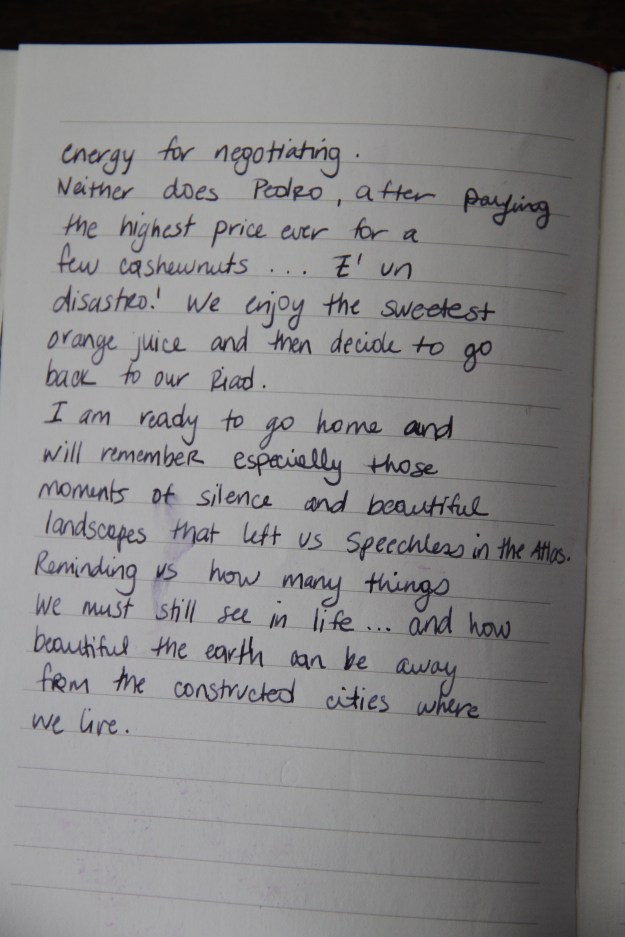 energy for negotiating.
Neither does Pedro, after paying
the highest price ever for a
few cashewnuts ... E' un
disastro! We enjoy the sweetest
orange juice and then decide to go
back to our Riad.
I am ready to go home and
will remember especially those
moments of silence and beautiful
landscapes that left us speechless in the Atlas.
Reminding us how many things
we must still see in life... and how
beautiful the earth can be away
from the constructed cities where
we live.